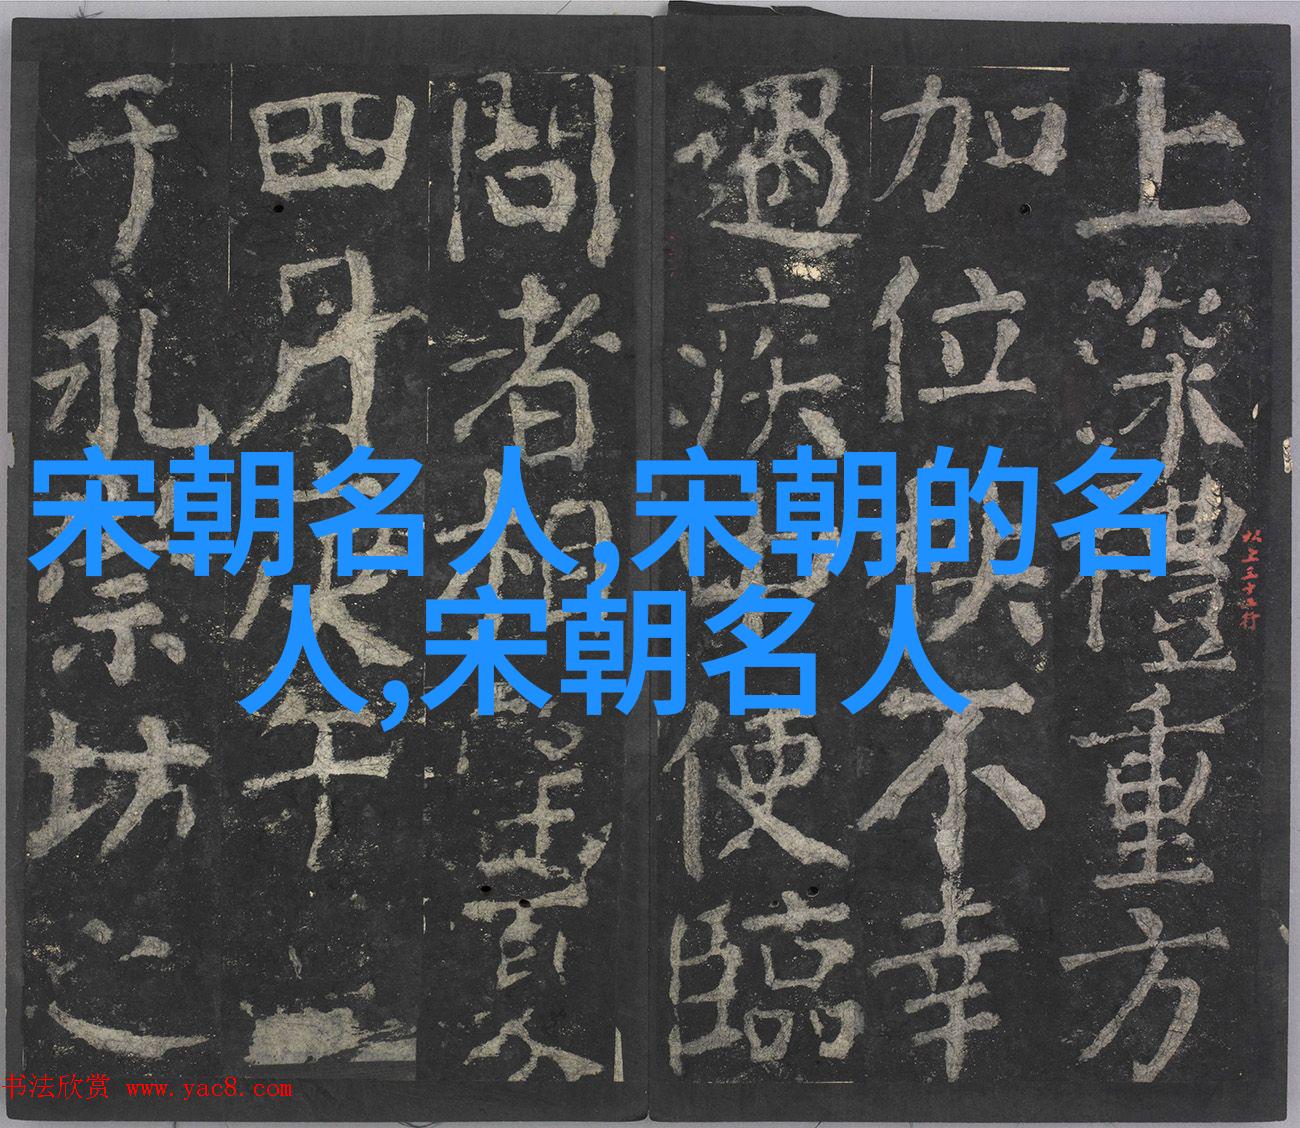 宋朝名人,宋朝的名
人,宋朝名人
上深禮重方
加位不幸
遇疾便臨
問者相望
四月庚午
于永崇坊之
以上行
书法欣赏 www.yac8.com